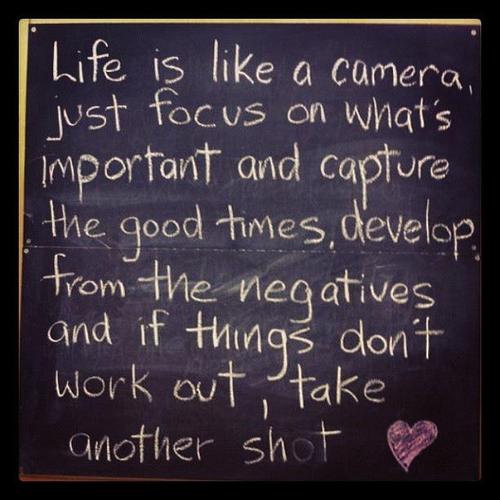 Life is like a camera,
just focus on what's
important and capture
the good times, develop
from the negatives
and if things don't
work out, take
another shot